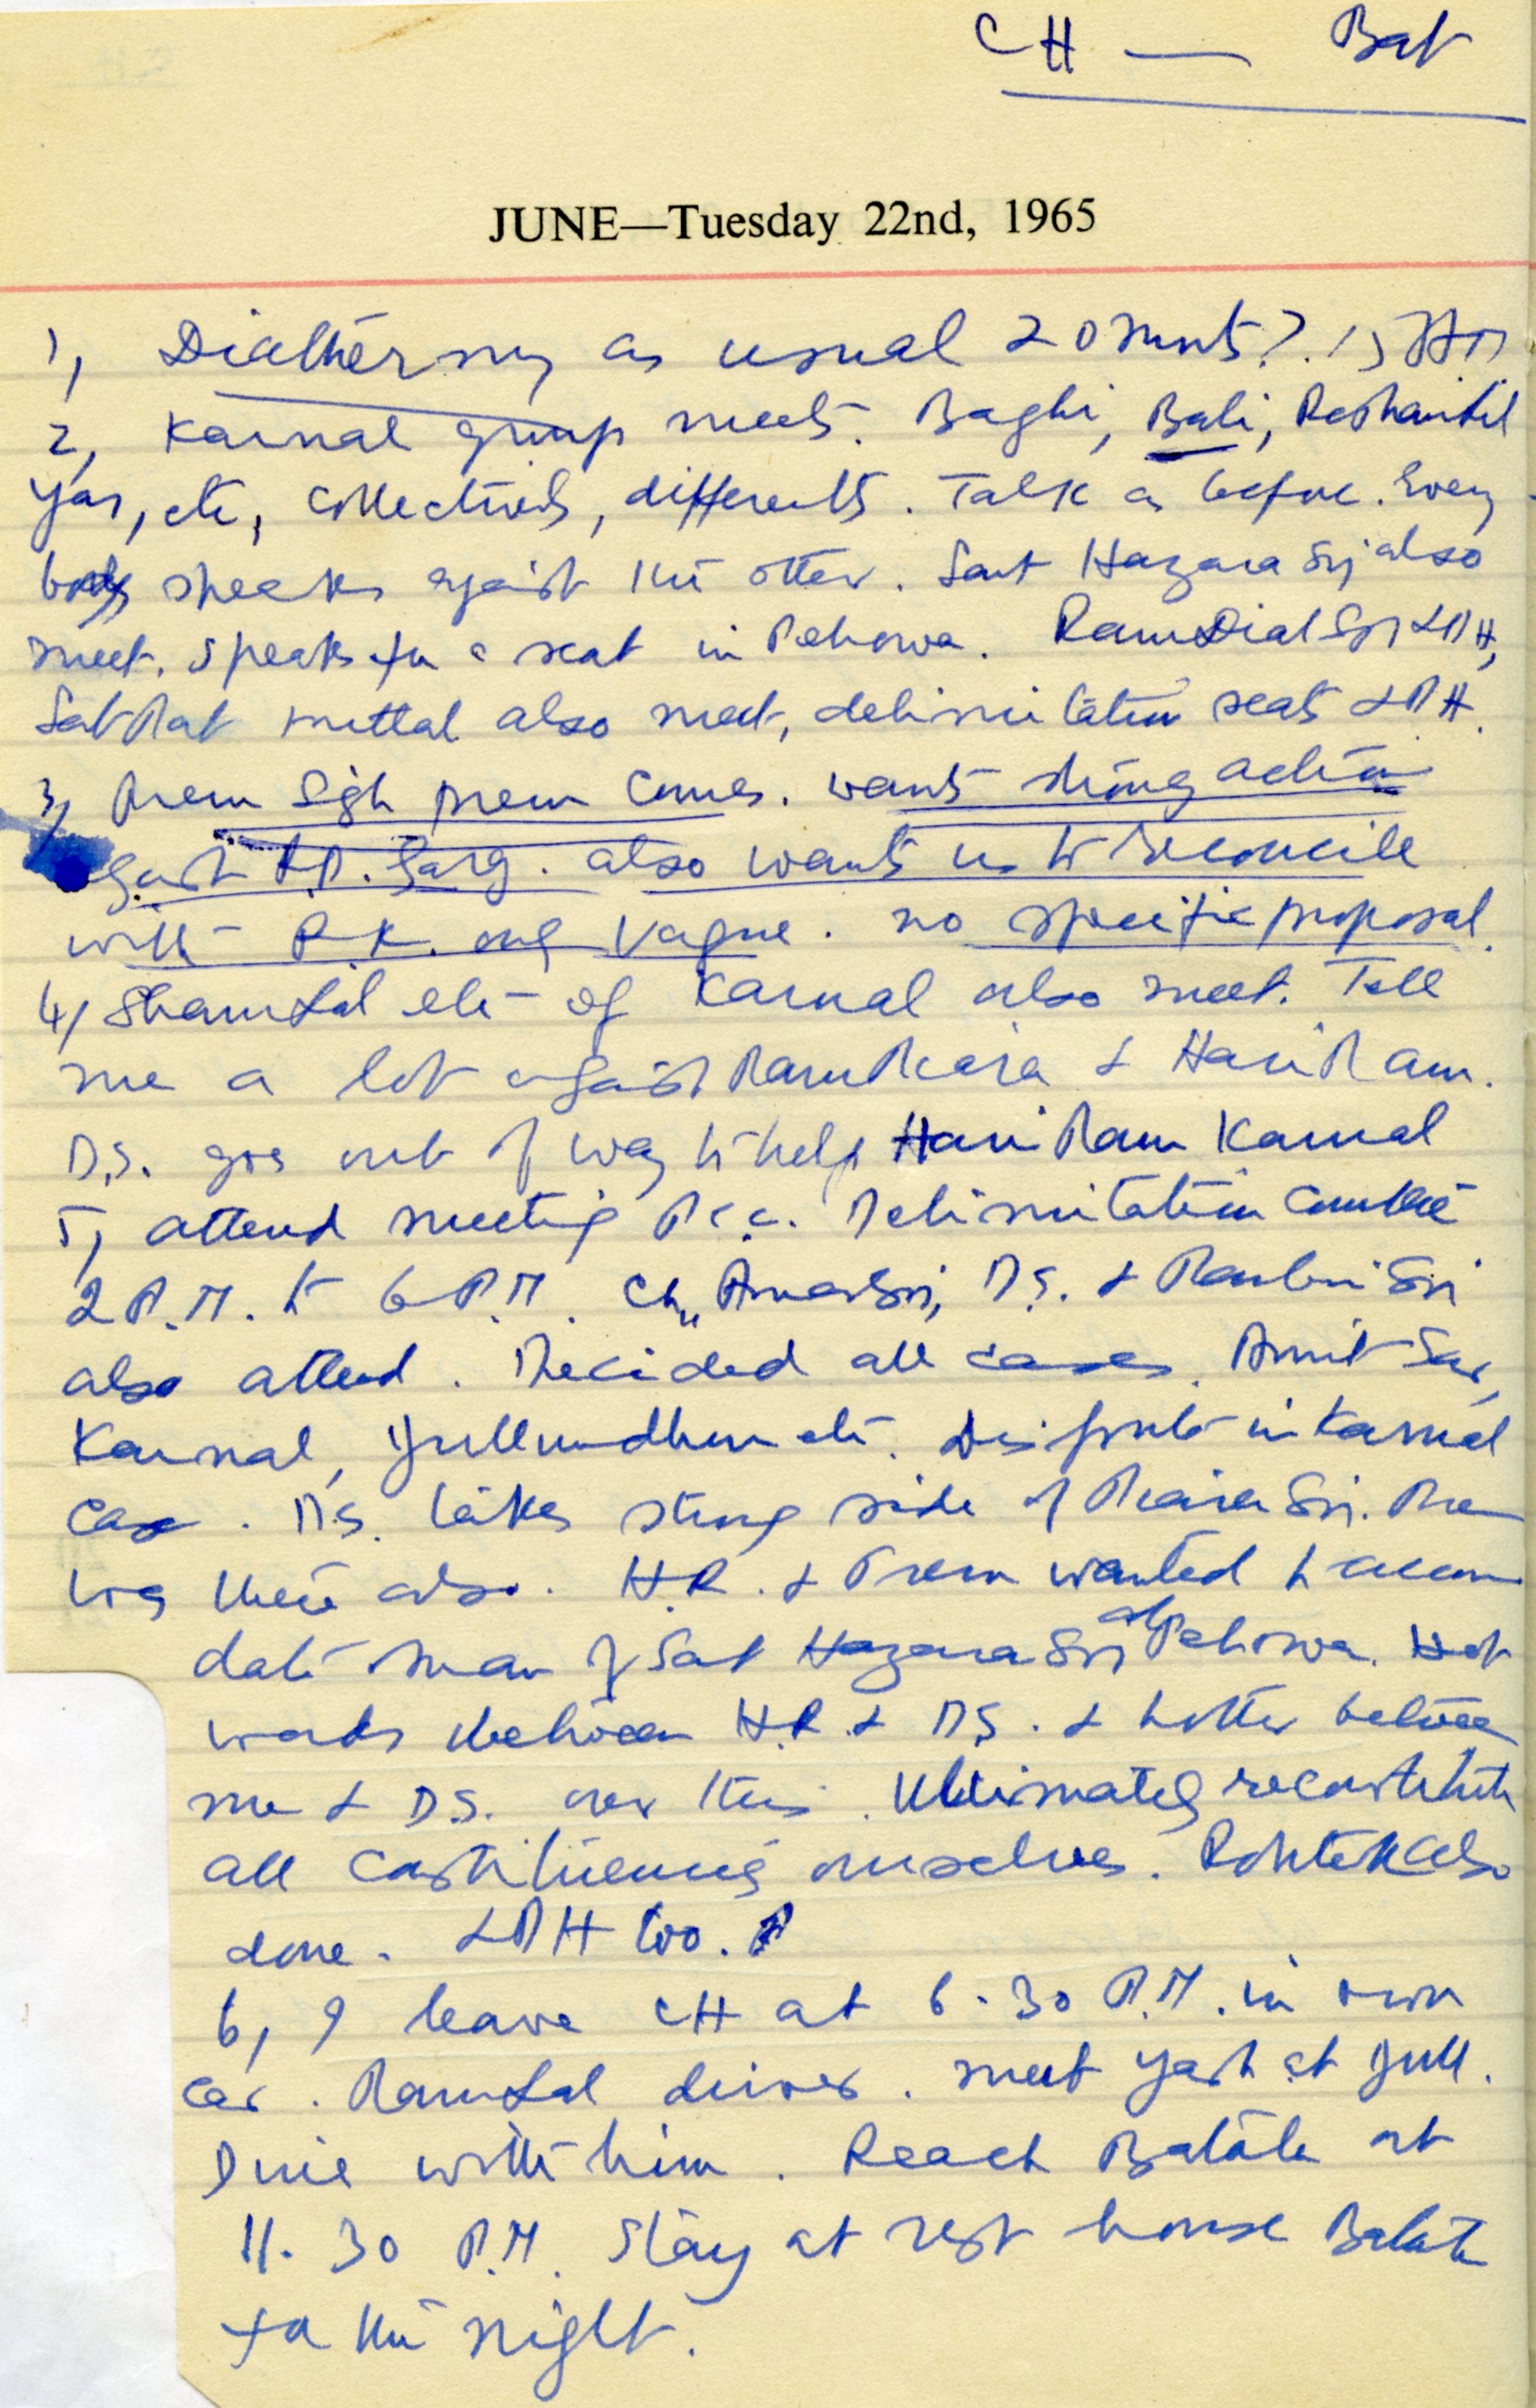 CH — Bat
JUNE—Tuesday 22nd, 1965
1, Diathermy as usual 20 mnts
2, Karnal group meets. Baghi, Bali,
etc, collectively, differently. Talk as before. Every
body speaks against the other. Sant Hazara Sg also
meet. Speaks for a seat in Pehowa. Ram Dial Sg LDH,
Sat Pal Mittal also meet, delimitation seats LDH.
3, Prem Sgh Prem comes. wants strong action
against R.P. Garg. also wants us to reconcile
with P.K. only vague. no specific proposal.
4, Sham Lal etc of Karnal also meet. Tell
me a lot against Ram Piara & Hari Ram.
D.S. goes out of way to help Hari Ram Karnal
5, attend meeting P.C.C. Delimitation Comttee
2 P.M. to 6 P.M. Ch,, Amar Sg, D.S. & Ranbir Sg
also attend. Decided all cases. Amritsar,
Karnal, Jullundhur etc. Dispute in Karnal
case. D.S. takes strong side of Piara Sg. Prem
was there also. H.R. & Prem wanted to accom
date man of Sant Hazara Sg at Pehowa. Hot
words between H.R. & D.S. & hotter between
me & D.S. over this. Ultimately reconstitute
all constituencies ourselves. Rohtak also
done. LDH too.
6, I leave CH at 6.30 P.M. in own
car. Ram Lal driver. meet Yash at Jull.
Dine with him. Reach Batala at
11.30 P.M. Stay at rest house Batala
for the night.